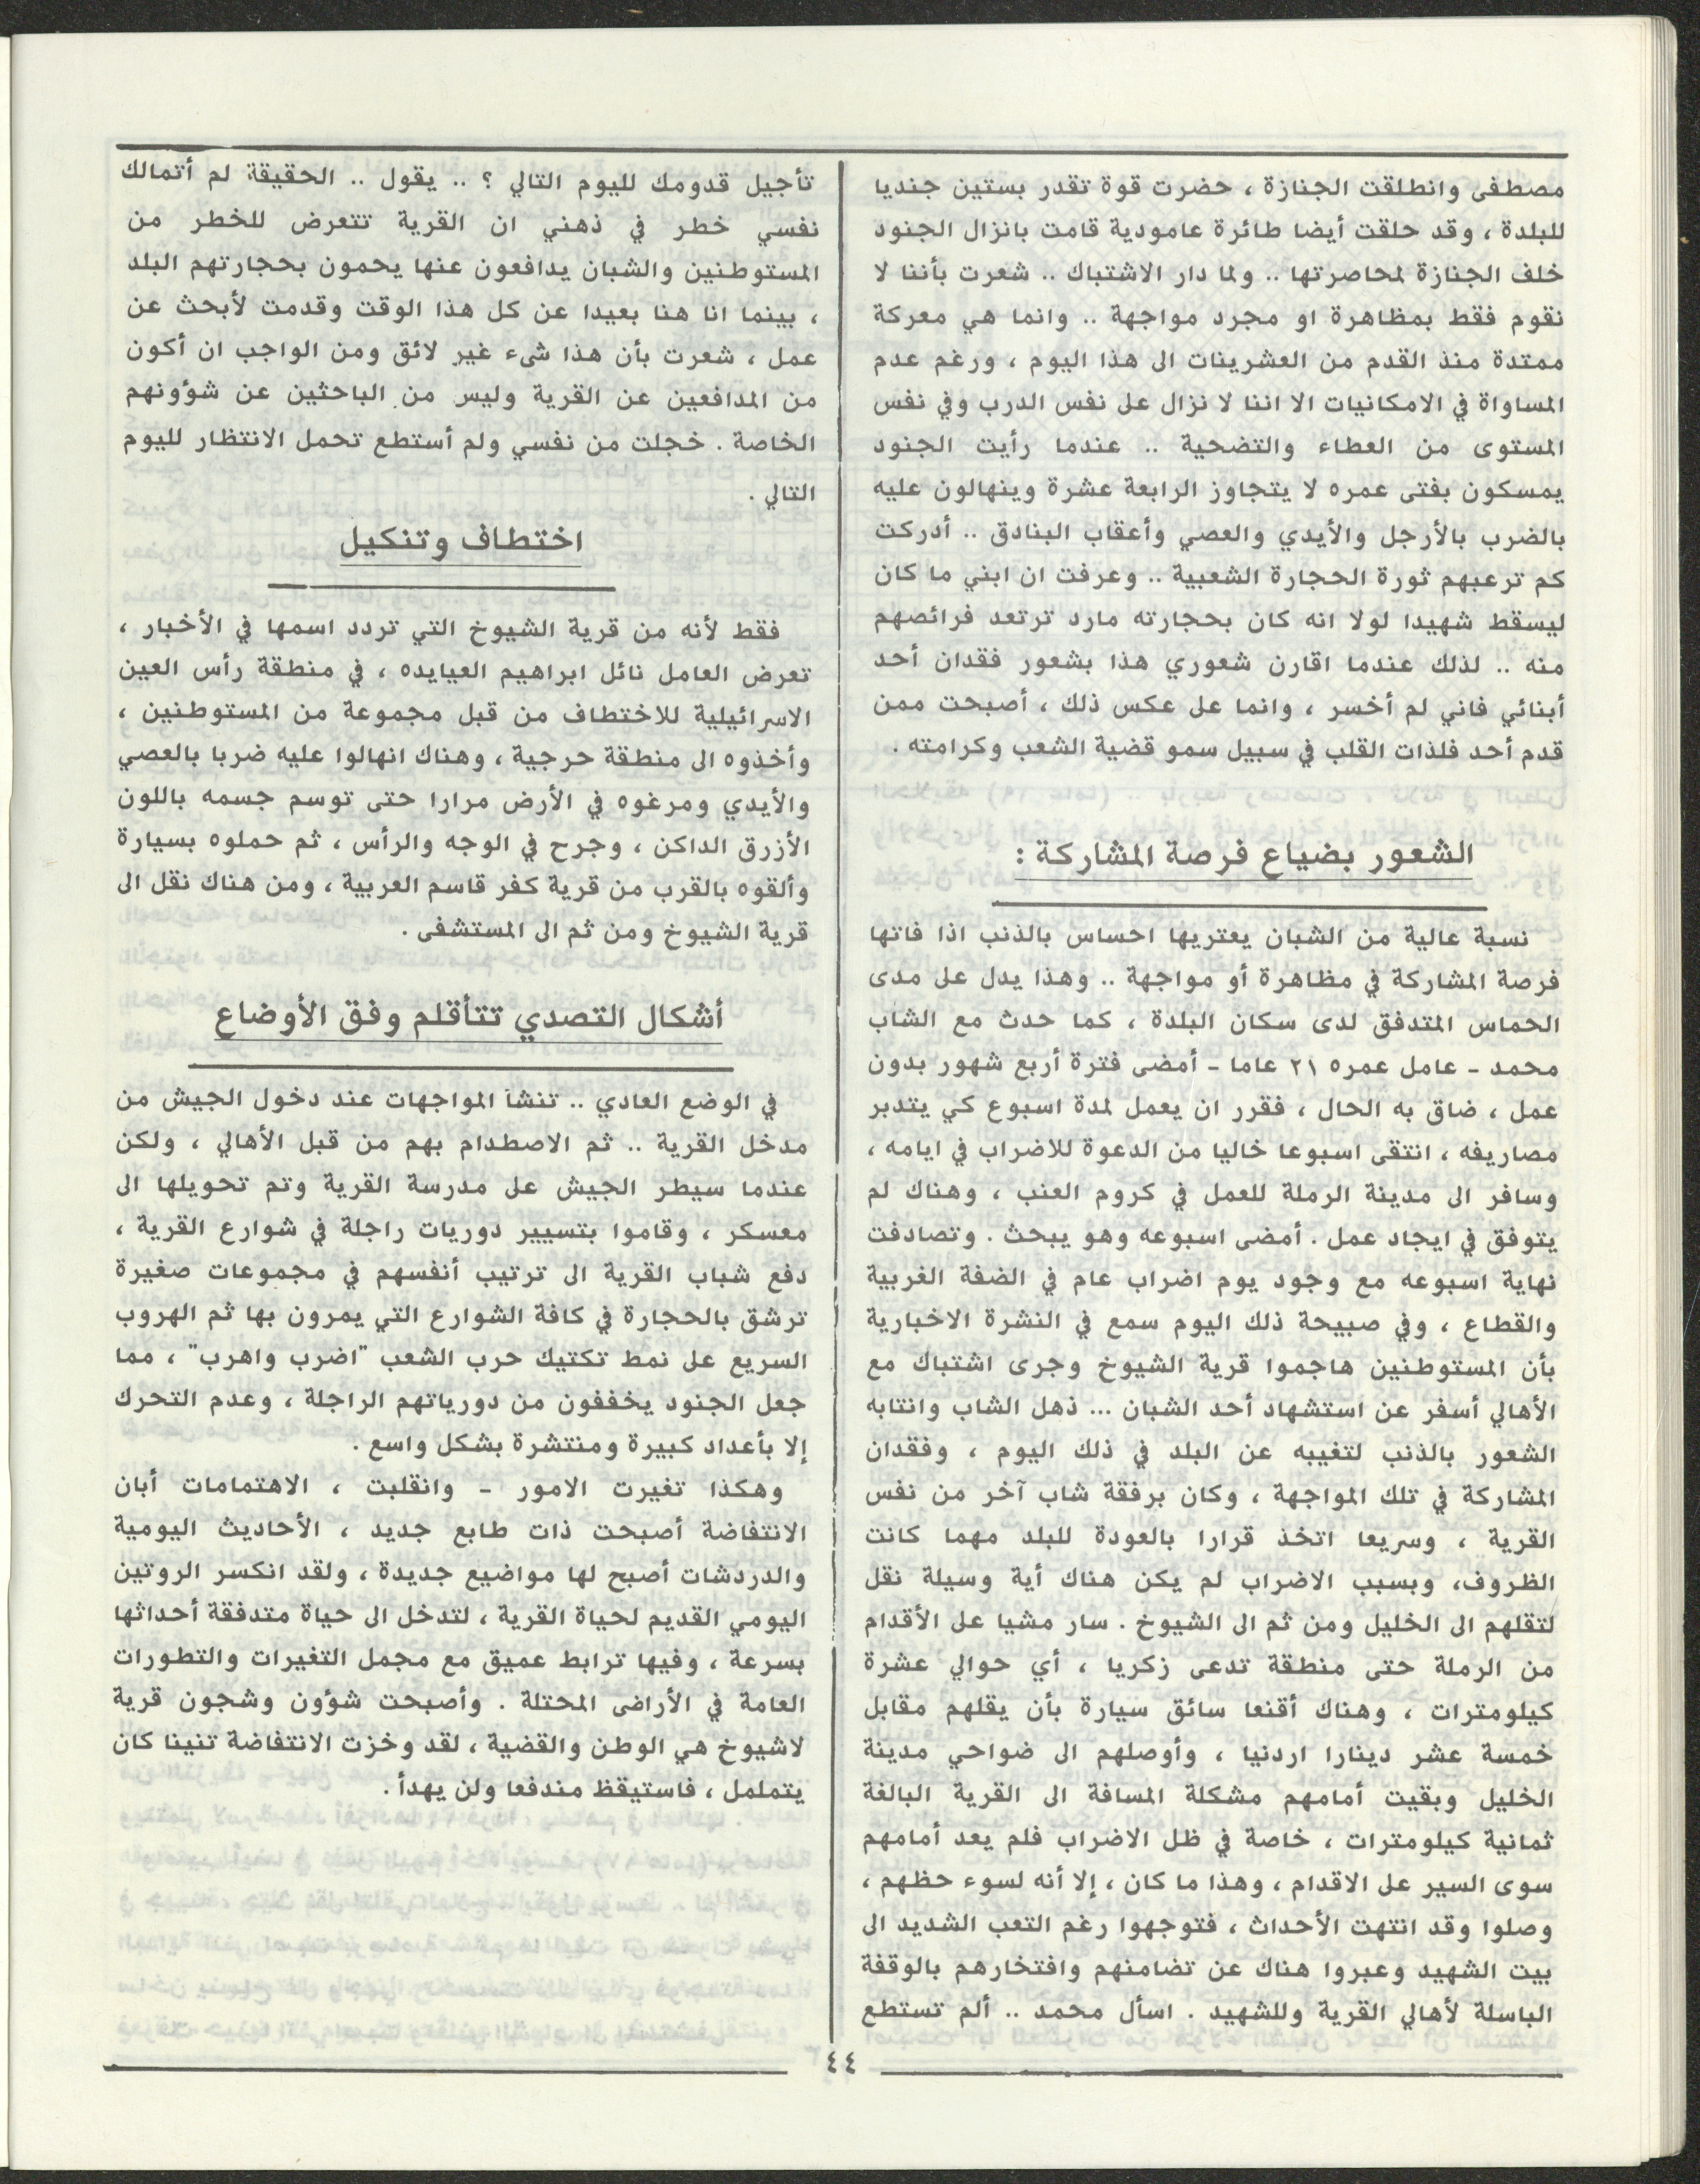 مصطفى وانطلقت الجنازة ، حضرت قوة تقدر بستين جنديا
للبلدة ، وقد حلقت أيضا طائرة عامودية قامت بانزال الجنود
خلف الجنازة لمحاصرتها .. ولما دار الاشتباك .. شعرت بأننا لا
نقوم فقط بمظاهرة او مجرد مواجهة .. وانما هي معركة
ممتدة منذ القدم من العشرينات الى هذا اليوم ، ورغم عدم
المساواة في الامكانيات الا اننا لا نزال على نفس الدرب وفي نفس
المستوى من العطاء والتضحية .. عندما رأيت الجنود
يمسكون بفتى عمره لا يتجاوز الرابعة عشرة وينهالون عليه
بالضرب بالأرجل والأيدي والعصي وأعقاب البنادق .. أدركت
كم ترعبهم ثورة الحجارة الشعبية .. وعرفت ان ابني ما كان
ليسقط شهيدا لولا انه كان بحجارته مارد ترتعد فرائصهم
منه .. لذلك عندما اقارن شعوري هذا بشعور فقدان أحد
أبنائي فاني لم أخسر ، وانما على عكس ذلك ، أصبحت ممن
قدم أحد فلذات القلب في سبيل سمو قضية الشعب وكرامته .
الشعور بضياع فرصة المشاركة :
نسبة عالية من الشبان يعتريها احساس بالذنب اذا فاتها
فرصة المشاركة في مظاهرة أو مواجهة .. وهذا يدل على مدى
الحماس المتدفق لدى سكان البلدة ، كما حدث مع الشاب
محمد - عامل عمره ٢١ عاما - أمضى فترة أربع شهور بدون
عمل ، ضاق به الحال ، فقرر ان يعمل لمدة اسبوع كي يتدبر
مصاريفه ، انتقى اسبوعا خاليا من الدعوة للاضراب في ايامه ،
وسافر الى مدينة الرملة للعمل في كروم العنب ، وهناك لم
يتوفق في ايجاد عمل . أمضى اسبوعه وهو يبحث . وتصادفت
نهاية اسبوعه مع وجود يوم اضراب عام في الضفة الغربية
والقطاع ، وفي صبيحة ذلك اليوم سمع في النشرة الاخبارية
بأن المستوطنين هاجموا قرية الشيوخ وجرى اشتباك مع
الأهالي أسفر عن استشهاد أحد الشبان ... ذهل الشاب وانتابه
الشعور بالذنب لتغيبه عن البلد في ذلك اليوم ، وفقدان
المشاركة في تلك المواجهة ، وكان برفقة شاب آخر من نفس
القرية ، وسريعا اتخذ قرارا بالعودة للبلد مهما كانت
الظروف، وبسبب الاضراب لم يكن هناك أية وسيلة نقل
لتقلهم الى الخليل ومن ثم الى الشيوخ . سار مشيا على الأقدام
من الرملة حتى منطقة تدعى زكريا ، أي حوالي عشرة
كيلومترات ، وهناك أقنعا سائق سيارة بأن يقلهم مقابل
خمسة عشر دينارا اردنيا ، وأوصلهم الى ضواحي مدينة
الخليل وبقيت أمامهم مشكلة المسافة الى القرية البالغة
ثمانية كيلومترات ، خاصة في ظل الاضراب فلم يعد أمامهم
سوى السير على الاقدام ، وهذا ما كان ، إلا أنه لسوء حظهم ،
وصلوا وقد انتهت الأحداث ، فتوجهوا رغم التعب الشديد الى
بيت الشهيد وعبروا هناك عن تضامنهم وافتخارهم بالوقفة
الباسلة لأهالي القرية وللشهيد . اسأل محمد .. ألم تستطع
تأجيل قدومك لليوم التالي ؟ .. يقول .. الحقيقة لم أتمالك
نفسي خطر في ذهني ان القرية تتعرض للخطر من
المستوطنين والشبان يدافعون عنها يحمون بحجارتهم البلد
، بينما انا هنا بعيدا عن كل هذا الوقت وقدمت لأبحث عن
عمل ، شعرت بأن هذا شىء غير لائق ومن الواجب ان أكون
من المدافعين عن القرية وليس من الباحثين عن شؤونهم
الخاصة . خجلت من نفسي ولم أستطع تحمل الانتظار لليوم
التالي .
اختطاف وتنكيل
فقط لأنه من قرية الشيوخ التي تردد اسمها في الأخبار ،
تعرض العامل نائل ابراهيم العيايده ، في منطقة رأس العين
الاسرائيلية للاختطاف من قبل مجموعة من المستوطنين ،
وأخذوه الى منطقة حرجية ، وهناك انهالوا عليه ضربا بالعصي
والأيدي ومرغوه في الأرض مرارا حتى توسم جسمه باللون
الأزرق الداكن ، وجرح في الوجه والرأس ، ثم حملوه بسيارة
وألقوه بالقرب من قرية كفر قاسم العربية ، ومن هناك نقل الى
قرية الشيوخ ومن ثم الى المستشفى .
أشكال التصدي تتأقلم وفق الأوضاع
في الوضع العادي .. تنشأ المواجهات عند دخول الجيش من
مدخل القرية .. ثم الاصطدام بهم من قبل الأهالي ، ولكن
عندما سيطر الجيش على مدرسة القرية وتم تحويلها الى
معسكر ، وقاموا بتسيير دوريات راجلة في شوارع القرية ،
دفع شباب القرية الى ترتيب أنفسهم في مجموعات صغيرة
ترشق بالحجارة في كافة الشوارع التي يمرون بها ثم الهروب
السريع على نمط تكتيك حرب الشعب "اضرب واهرب" ، مما
جعل الجنود يخففون من دورياتهم الراجلة ، وعدم التحرك
إلا بأعداد كبيرة ومنتشرة بشكل واسع .
وهكذا تغيرت الامور - وانقلبت ، الاهتمامات أبان
الانتفاضة أصبحت ذات طابع جديد ، الأحاديث اليومية
والدردشات أصبح لها مواضيع جديدة ، ولقد انكسر الروتين
اليومي القديم لحياة القرية ، لتدخل الى حياة متدفقة أحداثها
بسرعة ، وفيها ترابط عميق مع مجمل التغيرات والتطورات
العامة في الأراضى المحتلة . وأصبحت شؤون وشجون قرية
لاشيوخ هي الوطن والقضية ، لقد وخزت الانتفاضة تنينا كان
يتململ ، فاستيقظ مندفعا ولن يهدأ .
٤٤